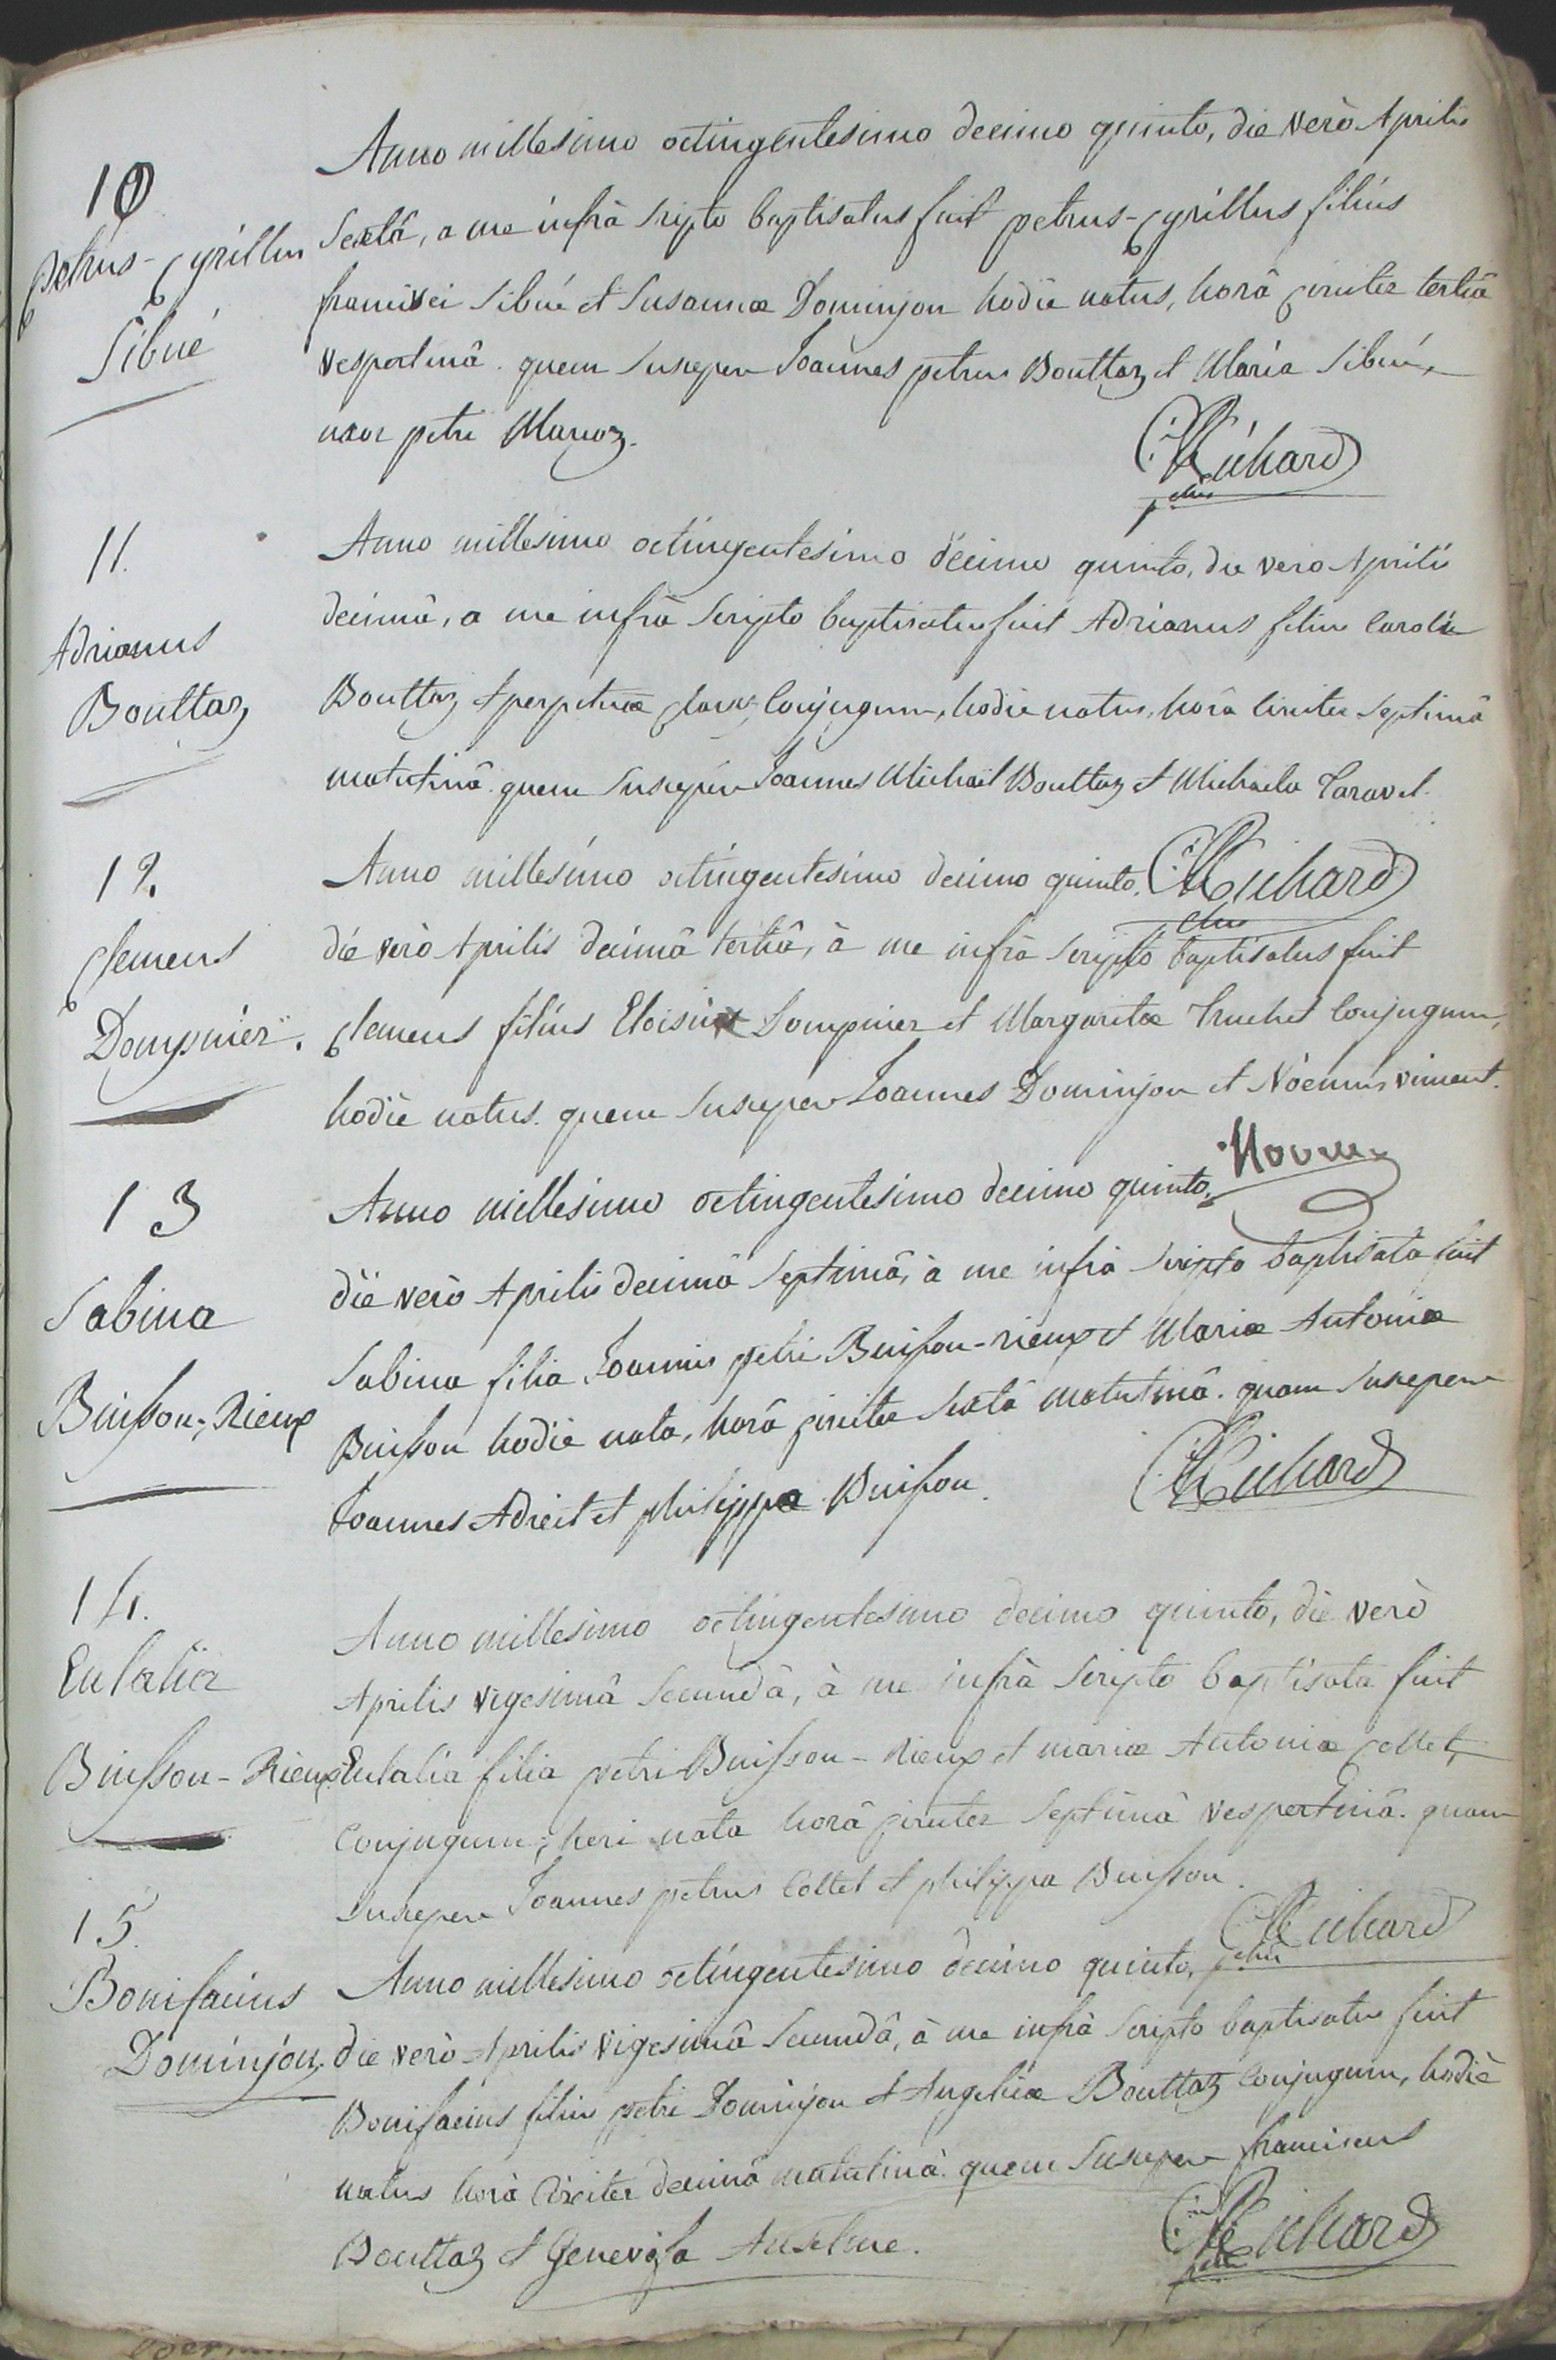 10
Petrus-Cyrillus
Sibué
Anno millesimo octingentesimo decimo quinto, die verò Aprilis
Sextâ, a me infrà Scripto baptisatus fuit petrus-Cyrillus filius
francisci Sibué et Susannæ Dominjon hodiè natus, horâ Circiter tertiâ
vespertinâ. quem Susceper Joannes petrus Bouttaz et Maria Sibué,
uxor petri Marcoz.
Richard
11.
Adrianus
Bouttaz
Anno millesimo octingentesimo decimo quinto, die vero Aprilis
decimâ, a me infrà Scripto baptisatus fuit Adrianus filius Caroli
Bouttaz et perpetuæ Claraz Conjugum, hodiè natus, horâ Circiter Septimâ
matutinâ. quem Susceper Joannes Michaël Bouttaz et Michaela Taravel.
Richard
12.
Clemens
Dompnier.
Anno millesimo octingentesimo decimo quinto,
die verò Aprilis decimâ tertiâ, à me infrà Scripto baptisatus fuit
Clemens filius Eloisii Dompnier et Margaritæ Truchet Conjugum,
hodiè natus. quem Susceper Joannes Dominjon et Noemis viment.
13
Sabina
Buisson-Rieux
Anno millesimo octingentesimo decimo quinto,
die verò Aprilis decimâ Septimâ, à me infrà Scripto baptisata fuit
Sabina filia Joannis petri Buisson-rieux et Mariæ Antoniæ
Buisson hodiè nata, horâ Circiter Sextâ matutinâ. quam Susceper
Joannes Adreit et philippa Buisson.
Richard
14.
Eulalia
Buisson-Rieux
Anno millesimo octingentesimo decimo quinto, die verò
Aprilis vigesimâ Secundâ, à me infrà Scripto baptisata fuit
Eulalia filia petri Buisson-Rieux et mariæ Antoniæ Collet,
Conjugum, heri nata horâ Circiter Septimâ vespertinâ. quam
Susceper Joannes petrus Collet et philippa Buisson.
Richard
15.
Bonifacius
Dominjon.
Anno millesimo octingentesimo decimo quinto,
die verò Aprilis vigesimâ Secundâ, à me infrà Scripto baptisatus fuit
Bonifacius filius petri Dominjon et Angelicæ Bouttaz Conjugum, hodiè
natus horâ Circiter decimâ matutinâ. quem Susceper franciscus
Bouttaz et Genevefa Anselme.
Richard